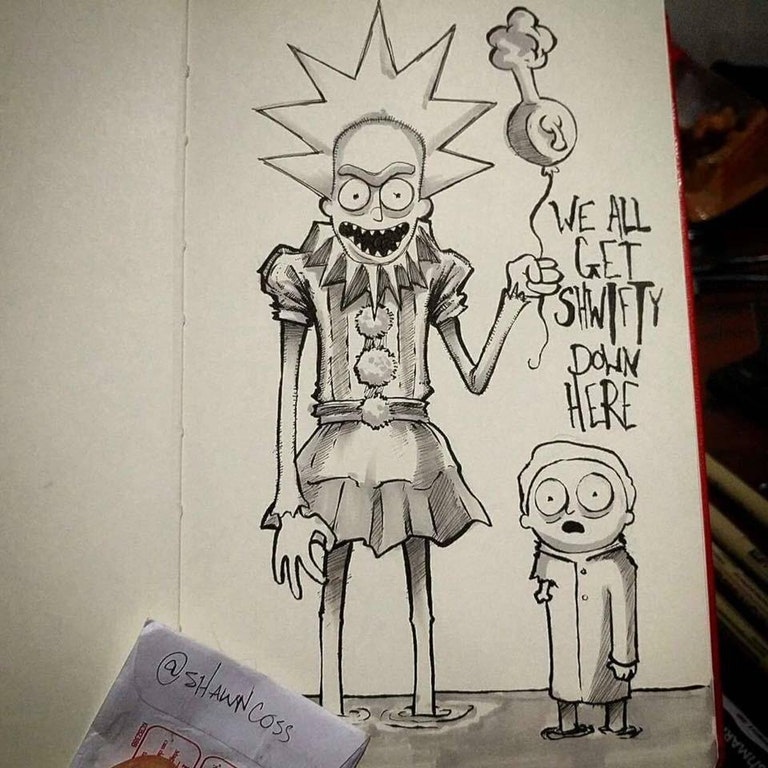 WE ALL
GET
SHWIFTY
DOWN
HERE
@SHAWNCOSS